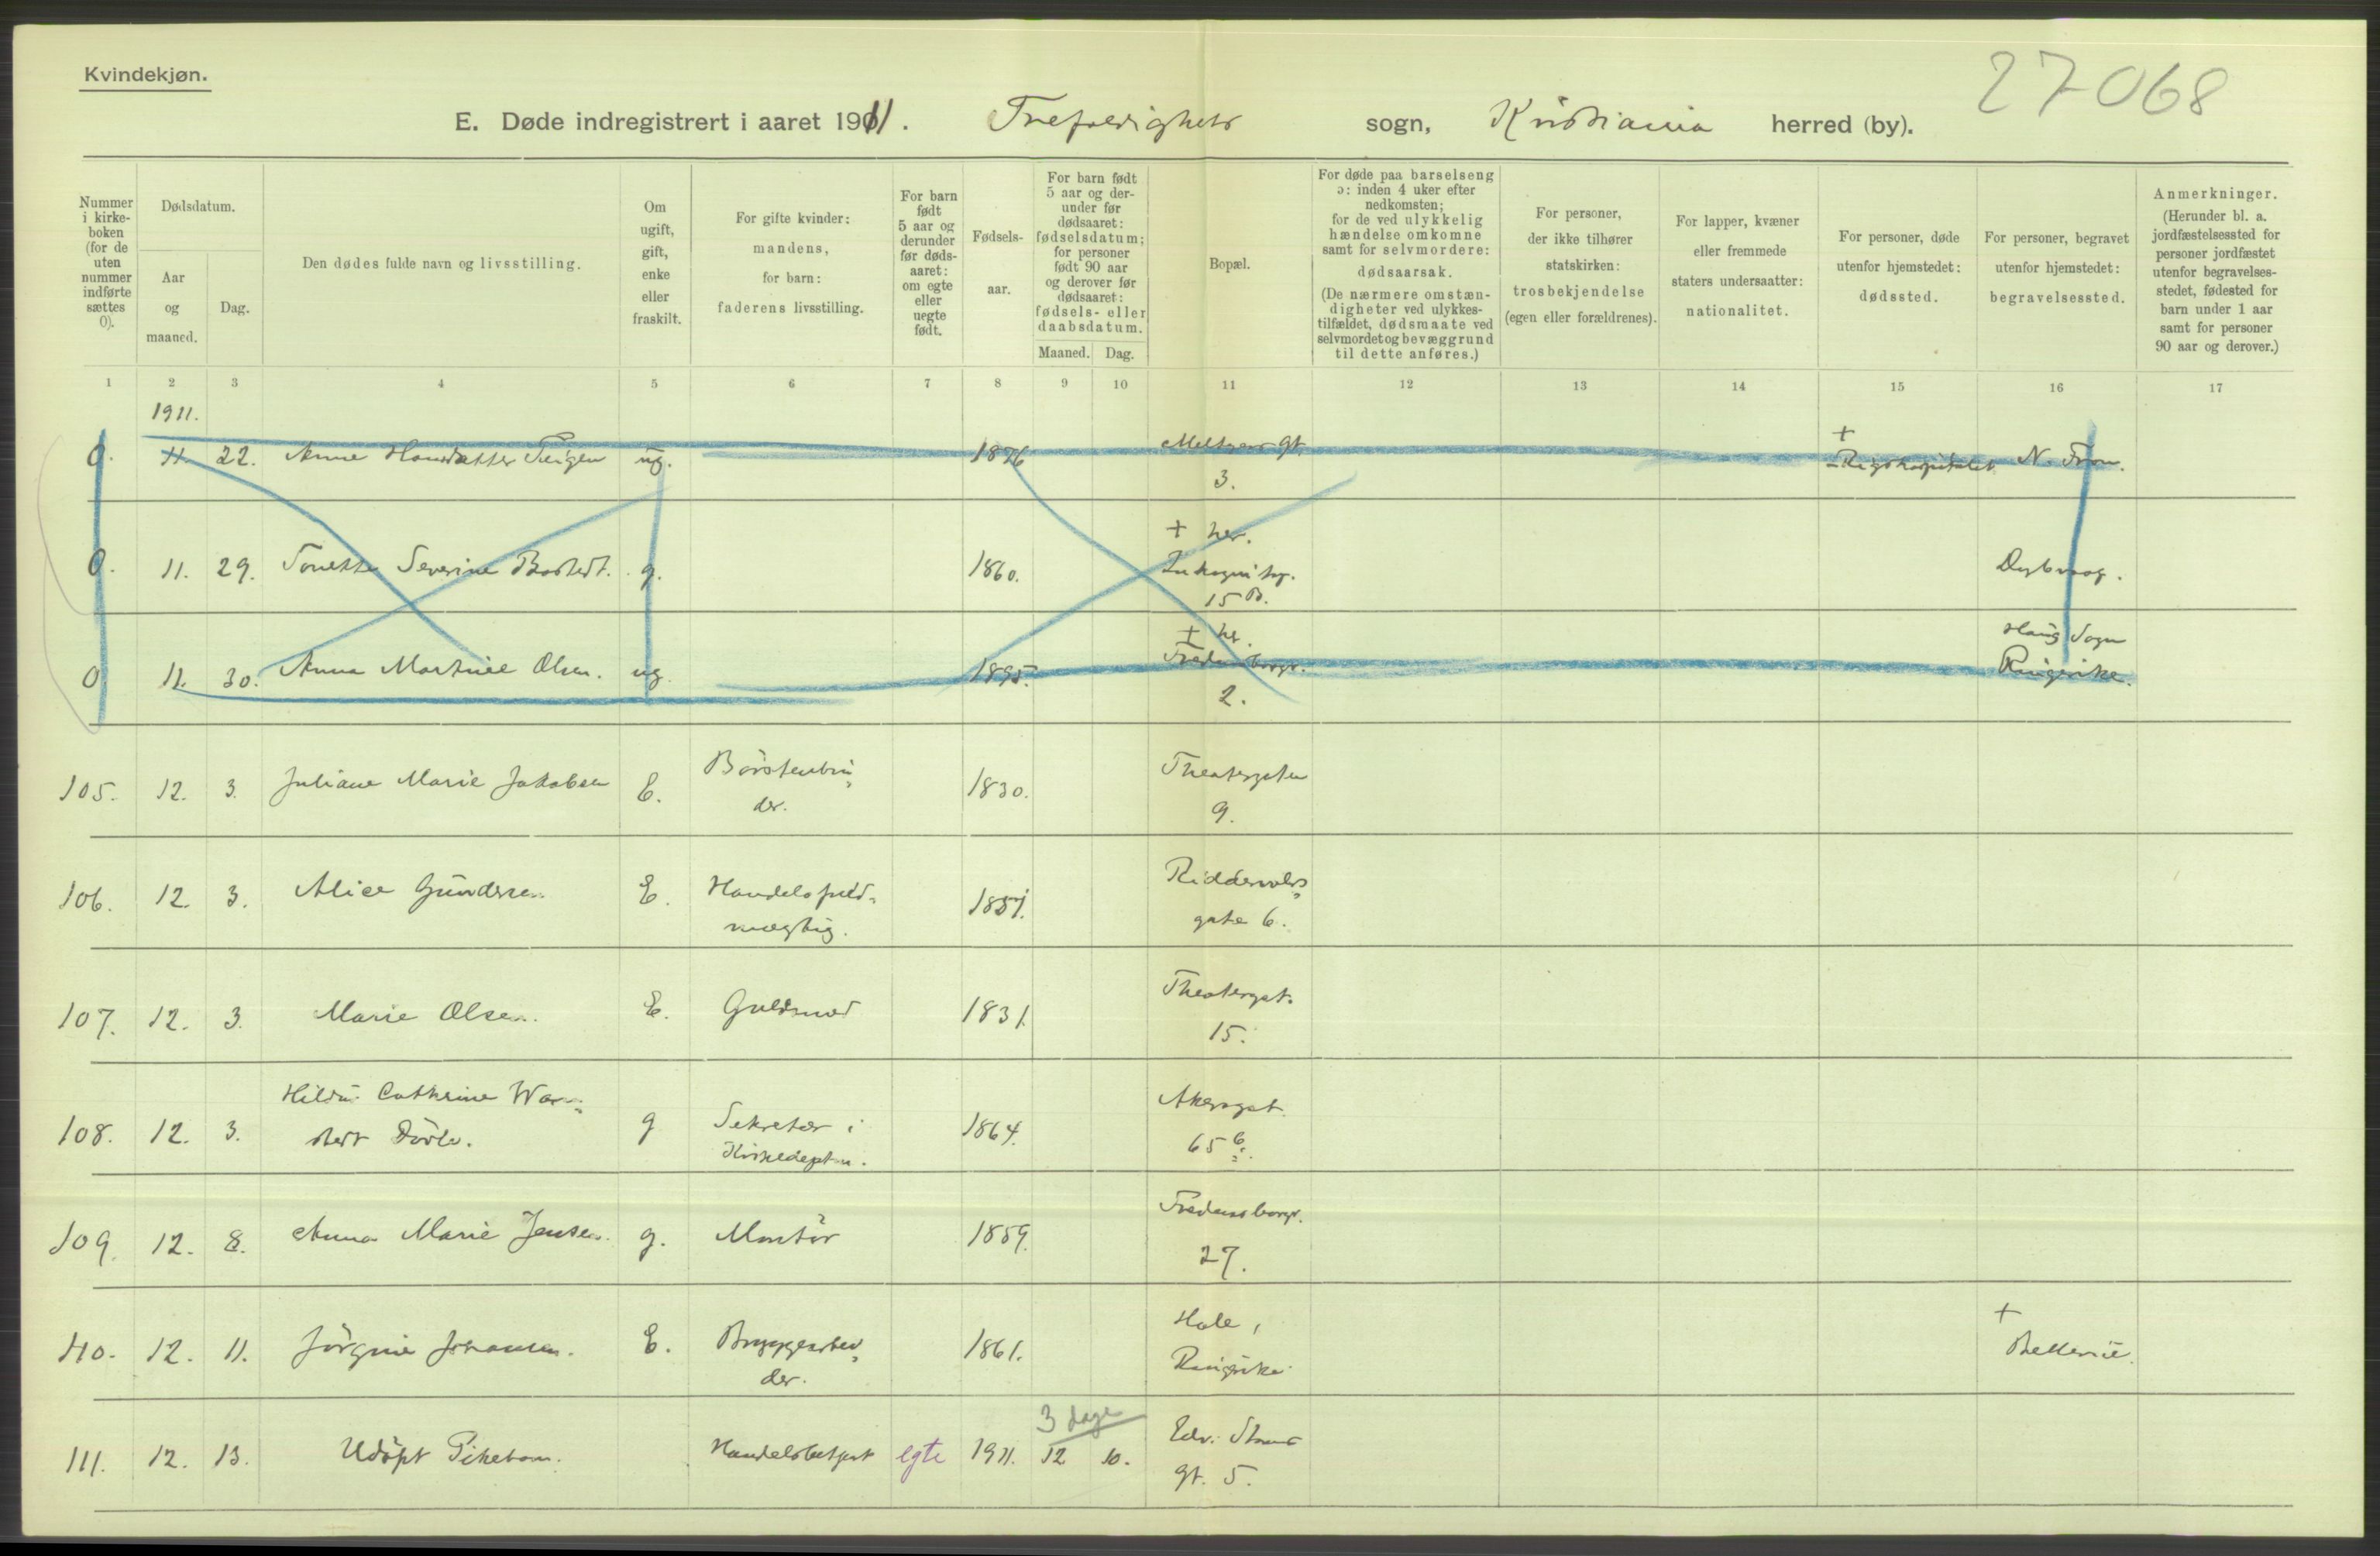 Kvindekjøn.
27068
E. Døde indregistrert i aaret 1911. Trefoldigheds sogn, Kristiania herred (by).
Nummer i kirke- boken (for de uten nummer indførte sættes 0).
Dødsdatum.
Aar og maaned.
Dag.
Den dødes fulde navn og livsstilling.
Om ugift, gift, enke eller fraskilt.
For gifte kvinder: mandens, for barn: faderens livsstilling.
For barn født 5 aar og derunder før døds- aaret: om egte eller uegte født.
Fødsels- aar.
For barn født 5 aar og der- under før dødsaaret: fødselsdatum; for personer født 90 aar og derover før dødsaaret: fødsels- eller daabsdatum.
Maaned. Dag.
Bopæl.
For døde paa barselseng ɔ: inden 4 uker efter nedkomsten; for de ved ulykkelig hændelse omkomne samt for selvmordere: dødsaarsak. (De nærmere omstæn- digheter ved ulykkes- tilfældet, dødsmaate ved selvmordet og bevæggrund til dette anføres.)
For personer, der ikke tilhører statskirken: trosbekjendelse (egen eller forældrenes).
For lapper, kvæner eller fremmede staters undersaatter: nationalitet.
For personer, døde utenfor hjemstedet: dødssted.
For personer, begravet utenfor hjemstedet: begravelsessted.
Anmerkninger. (Herunder bl. a. jordfæstelsessted for personer jordfæstet utenfor begravelses- stedet, fødested for barn under 1 aar samt for personer 90 aar og derover.)
1 2 3 4 5 6 7 8 9 10 11 12 13 14 15 16 17
1911.
0. 11. 22. Anne Hansdatter ug. 1876 Meltzers gt. 3. + Rigshospitalet N. Fron.
0. 11. 29. Severine g. 1860. + her. Inkognitog. 15 B. Dybvaag.
0 11. 30. Anna Martine Olsen. ug. 1895. + her. Fredensborgv. 2. Haug Sogn Ringerike.
105. 12. 3. Juliane Marie Jakobsen E. Börstenbin-
der. 1830. Theatergaten 9.
106. 12. 3. Alice Gundersen E. Handelsfuld-
mægtig. 1857. Riddervolds-
gate 6.
107. 12. 3. Marie Olsen. E. Guldsmed 1831. Theatergat. 15.
108. 12. 3. Cathrine g Sekretær i
Kirkedeptm. 1864. Akersgat. 65 b.
109. 12. 8. Anna Marie Jensen. g. Montör 1859. Fredensborgv. 27.
110. 12. 11. Jörgine Johansen. E. Bryggearbei-
der. 1861. Hole,
Ringerike +
111. 12. 13. Udöpt Pikebarn. Handelsbetjent egte 1911. 3 dage 12 10. Edv. Storms
gt. 5.